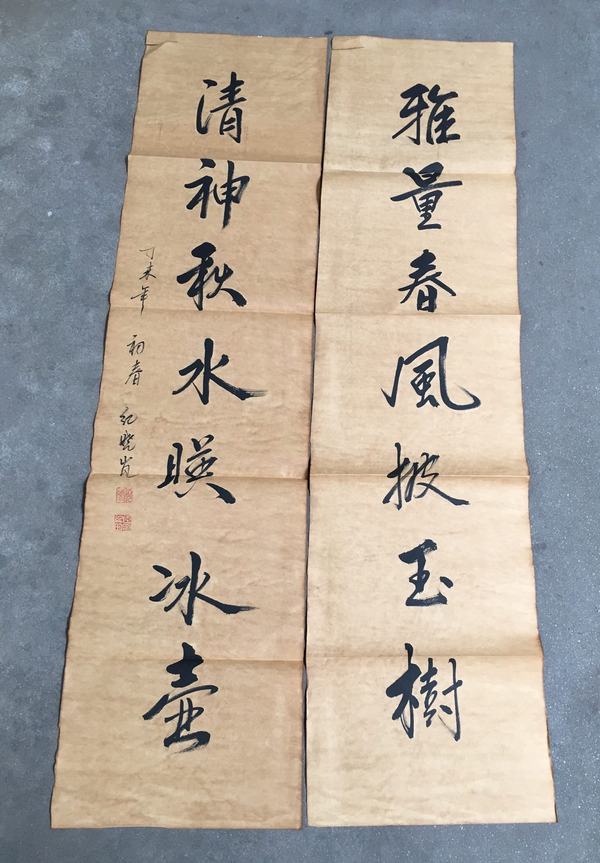 雅量春風披玉樹
清神秋水暎冰壺
丁未年 初春 紀曉嵐